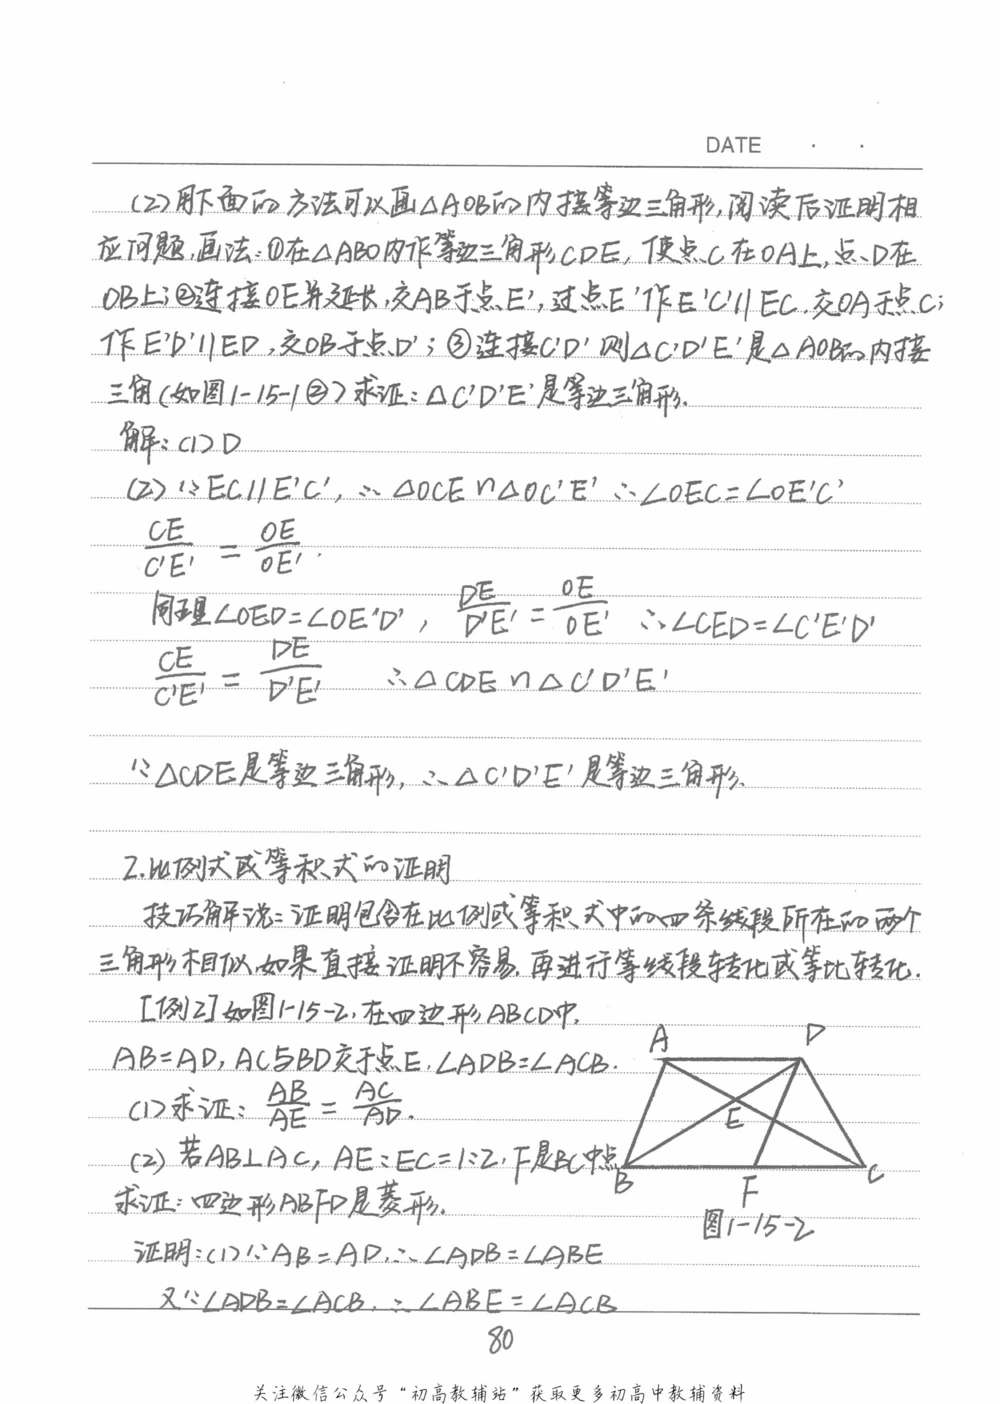 DATE · ·
(2)用下面的方法可以画△AOB的内接等边三角形,阅读后证明相
应问题,画法:①在△ABO内作等边三角形CDE,使点C在OA上,点D在
OB上;②连接OE并延长,交AB于点E',过点E'作E'C'//EC,交OA于点C';
作E'D'//ED,交OB于点D';③连接C'D'则△C'D'E'是△AOB的内接
三角(如图1-15-1②)求证:△C'D'E'是等边三角形.
解:(1)D
(2)∵EC//E'C',∴△OCE∽△OC'E' ∴∠OEC=∠OE'C'
CE/C'E' = OE/OE'.
同理∠OED=∠OE'D', DE/D'E' = OE/OE' ∴∠CED=∠C'E'D'
CE/C'E' = DE/D'E' ∴△CDE∽△C'D'E'
∵△CDE是等边三角形,∴△C'D'E'是等边三角形.
2.比例式或等积式的证明
技巧解说:证明包含在比例或等积式中的四条线段所在的两个
三角形相似,如果直接证明不容易,再进行等线段转化或等比转化.
[例2]如图1-15-2,在四边形ABCD中,
AB=AD,AC与BD交于点E,∠ADB=∠ACB.
(1)求证: AB/AE = AC/AD.
(2)若AB⊥AC,AE:EC=1:2,F是BC中点
求证:四边形ABFD是菱形.
A D
E
B F C
图1-15-2
证明:(1)∵AB=AD,∴∠ADB=∠ABE
又∵∠ADB=∠ACB,∴∠ABE=∠ACB
80
关注微信公众号“初高教辅站”获取更多初高中教辅资料